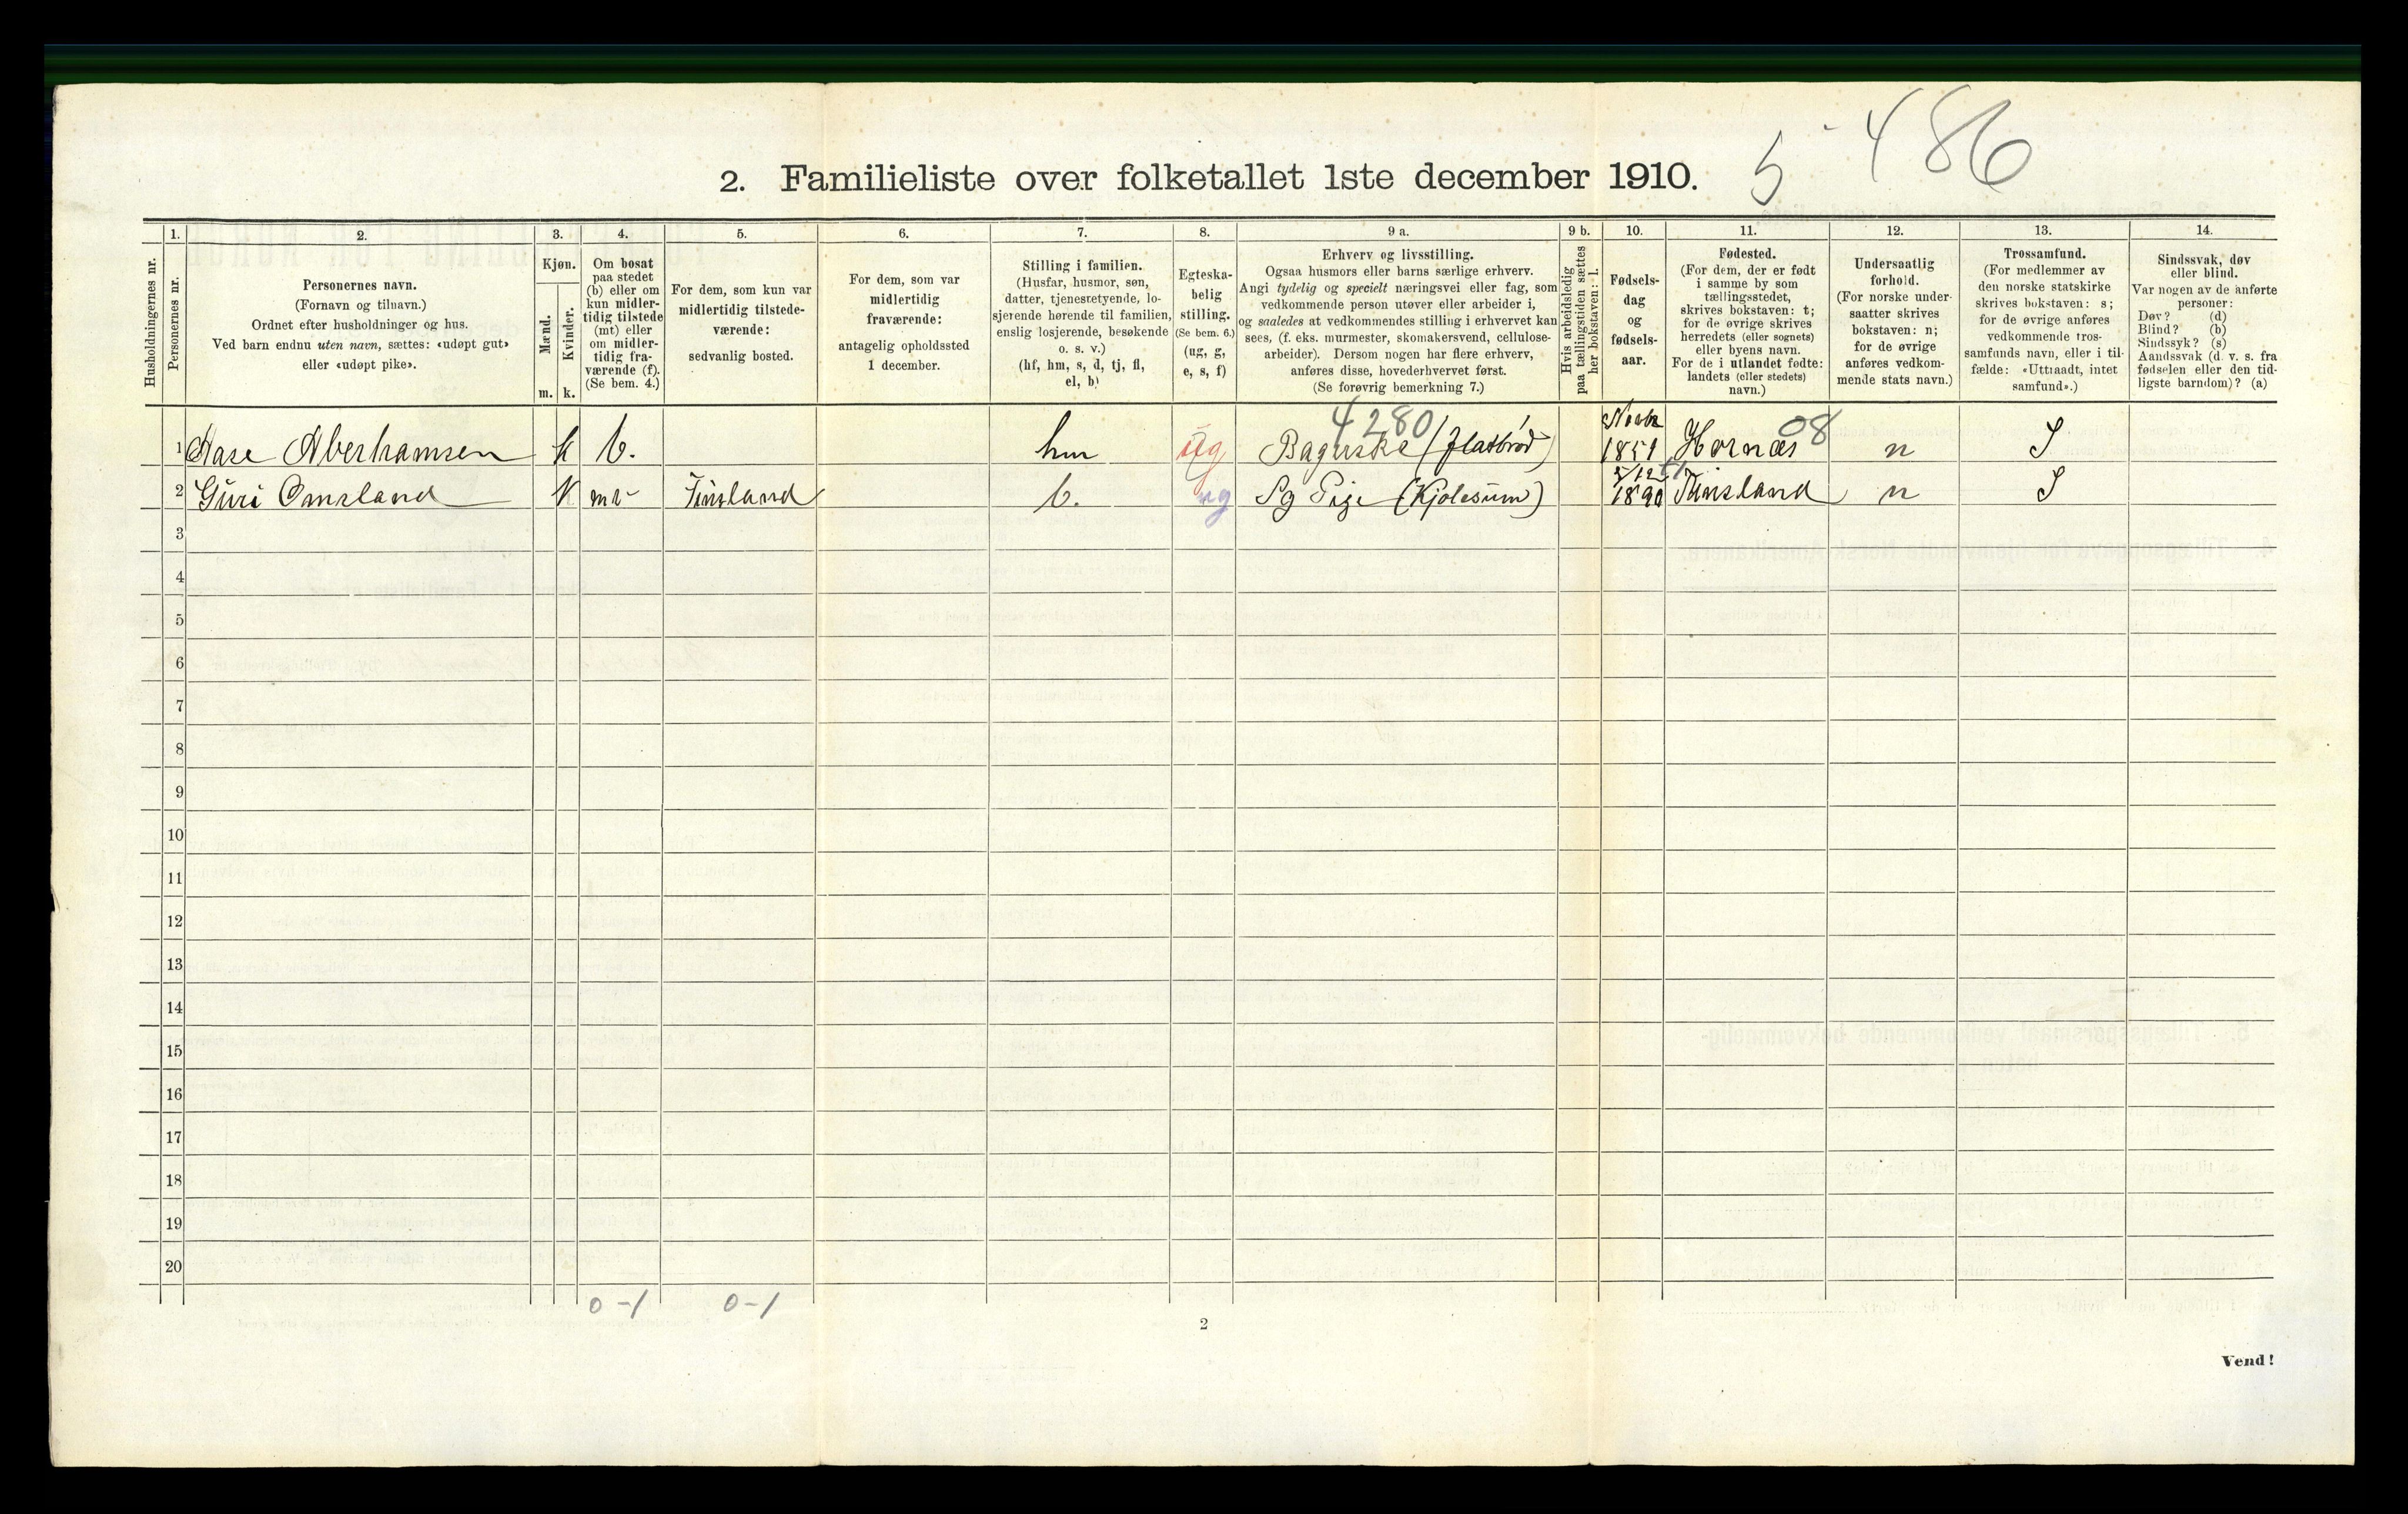 5 486
2. Familieliste over folketallet 1ste december 1910.
1. 2. 3. 4. 5. 6. 7. 8. 9 a. 9 b. 10. 11. 12. 13. 14.
Husholdningernes nr.
Personernes nr.
Personernes navn.
(Fornavn og tilnavn.)
Ordnet efter husholdninger og hus.
Ved barn endnu uten navn, sættes: «udøpt gut»
eller «udøpt pike».
Kjøn.
Mænd.
Kvinder.
m. k.
Om bosat
paa stedet
(b) eller om
kun midler-
tidig tilstede
(mt) eller
om midler-
tidig fra-
værende (f).
(Se bem. 4.)
For dem, som kun var
midlertidig tilstede-
værende:
sedvanlig bosted.
For dem, som var
midlertidig
fraværende:
antagelig opholdssted
1 december.
Stilling i familien.
(Husfar, husmor, søn,
datter, tjenestetyende, lo-
sjerende hørende til familien,
enslig losjerende, besøkende
o. s. v.)
(hf, hm, s, d, tj, fl,
el, b)
Egteska-
belig
stilling.
(Se bem. 6.)
(ug, g,
e, s, f)
Erhverv og livsstilling.
Ogsaa husmors eller barns særlige erhverv.
Angi tydelig og specielt næringsvei eller fag, som
vedkommende person utøver eller arbeider i,
og saaledes at vedkommendes stilling i erhvervet kan
sees, (f. eks. murmester, skomakersvend, cellulose-
arbeider). Dersom nogen har flere erhverv,
anføres disse, hovederhvervet først.
(Se forøvrig bemerkning 7.)
Hvis arbeidsledig
paa tællingstiden sættes
her bokstaven: l.
Fødsels-
dag
og
fødsels-
aar.
Fødested.
(For dem, der er født
i samme by som
tællingsstedet,
skrives bokstaven: t;
for de øvrige skrives
herredets (eller sognets)
eller byens navn.
For de i utlandet fødte:
landets (eller stedets)
navn.)
Undersaatlig
forhold.
(For norske under-
saatter skrives
bokstaven: n;
for de øvrige
anføres vedkom-
mende stats navn.)
Trossamfund.
(For medlemmer av
den norske statskirke
skrives bokstaven: s;
for de øvrige anføres
vedkommende tros-
samfunds navn, eller i til-
fælde: «Uttraadt, intet
samfund».)
Sindssvak, døv
eller blind.
Var nogen av de anførte
personer:
Døv? (d)
Blind? (b)
Sindssyk? (s)
Aandssvak (d. v. s. fra
fødselen eller den tid-
ligste barndom)? (a)
4280 08
1 Aase Aberhamsen k b. hm ug Baguske (flatbrød) 1851 Hornæs n S
2 Guri Omsland K mt Finsland b. ug Sy Pige (Kjolesøm) 5/12 1890 Finsland n S
3
4
5
6
7
8
9
10
11
12
13
14
15
16
17
18
19
20
0-1 0-1
2
Vend!